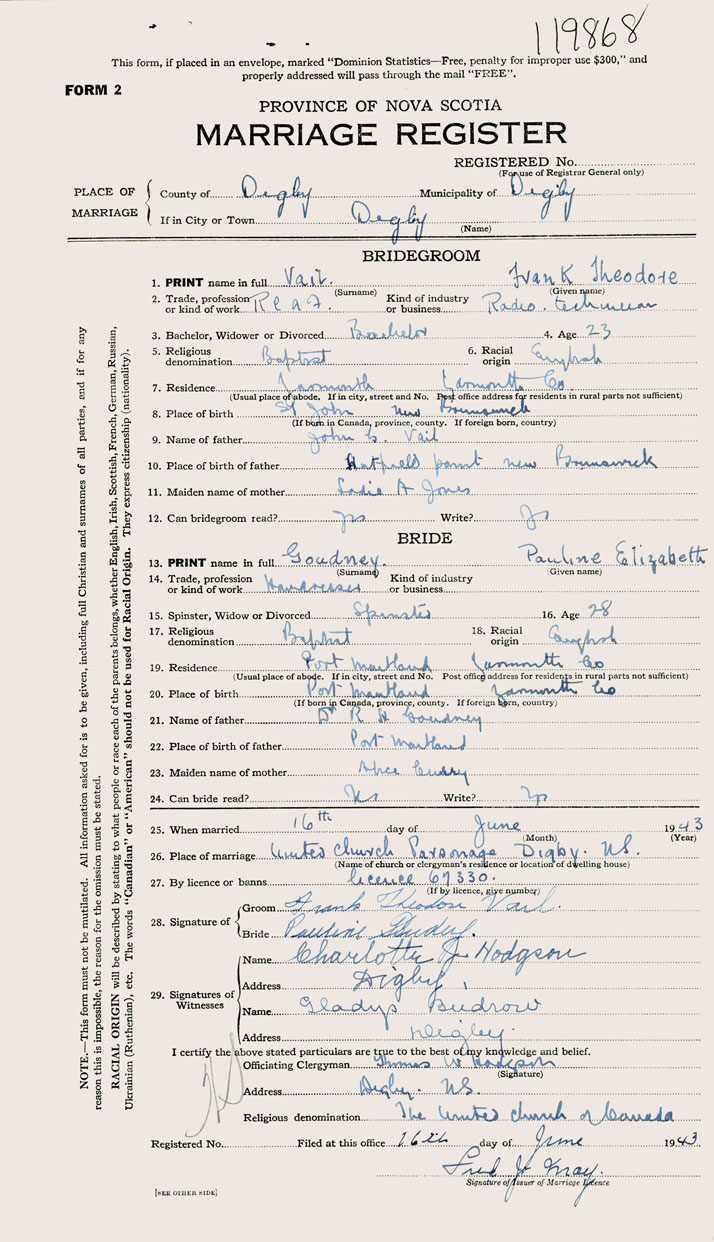 119868
This form, if placed in an envelope, marked "Dominion Statistics—Free, penalty for improper use $300," and
properly addressed will pass through the mail "FREE".
FORM 2
PROVINCE OF NOVA SCOTIA
MARRIAGE REGISTER
REGISTERED No.
(For use of Registrar General only)
PLACE OF MARRIAGE
County of Digby Municipality of Digby
If in City or Town Digby
(Name)
BRIDEGROOM
1. PRINT name in full Vail. Frank Theodore
(Surname) (Given name)
2. Trade, profession or kind of work Kind of industry or business Radio technician
3. Bachelor, Widower or Divorced Bachelor 4. Age 23
5. Religious denomination Baptist 6. Racial origin English
7. Residence Yarmouth Yarmouth Co
(Usual place of abode. If in city, street and No. Post office address for residents in rural parts not sufficient)
8. Place of birth St John New Brunswick
(If born in Canada, province, county. If foreign born, country)
9. Name of father John Vail
10. Place of birth of father Hatfield point new Brunswick
11. Maiden name of mother Sadie A Jones
12. Can bridegroom read? yes Write? yes
BRIDE
13. PRINT name in full Goudney. Pauline Elizabeth
(Surname) (Given name)
14. Trade, profession or kind of work Hairdresser Kind of industry or business
15. Spinster, Widow or Divorced Spinster 16. Age 28
17. Religious denomination Baptist 18. Racial origin English
19. Residence Port Maitland Yarmouth Co
(Usual place of abode. If in city, street and No. Post office address for residents in rural parts not sufficient)
20. Place of birth Port Maitland Yarmouth Co
(If born in Canada, province, county. If foreign born, country)
21. Name of father Dr R H Goudney
22. Place of birth of father Port Maitland
23. Maiden name of mother Alice
24. Can bride read? Yes Write? yes
25. When married 16th day of June 1943
(Month) (Year)
26. Place of marriage United Church Parsonage Digby. N.S.
(Name of church or clergyman's residence or location of dwelling house)
27. By licence or banns licence 67330.
(If by licence, give number)
28. Signature of
Groom Frank Theodore Vail.
Bride Pauline
29. Signatures of Witnesses
Name Charlotte J. Hodgson
Address Digby
Name Gladys Budrow
Address Digby.
I certify the above stated particulars are true to the best of my knowledge and belief.
Officiating Clergyman Thomas W Hodgson
(Signature)
Address Digby. N.S.
Religious denomination The United church of Canada
Registered No. Filed at this office 16th day of June 1943
Fred
Signature of Issuer of Marriage Licence
[SEE OTHER SIDE]
NOTE.—This form must not be mutilated. All information asked for is to be given, including full Christian and surnames of all parties, and if for any
reason this is impossible, the reason for the omission must be stated.
RACIAL ORIGIN will be described by stating to what people or race each of the parents belongs, whether English, Irish, Scottish, French, German, Russian,
Ukrainian (Ruthenian), etc. The words "Canadian" or "American" should not be used for Racial Origin. They express citizenship (nationality).